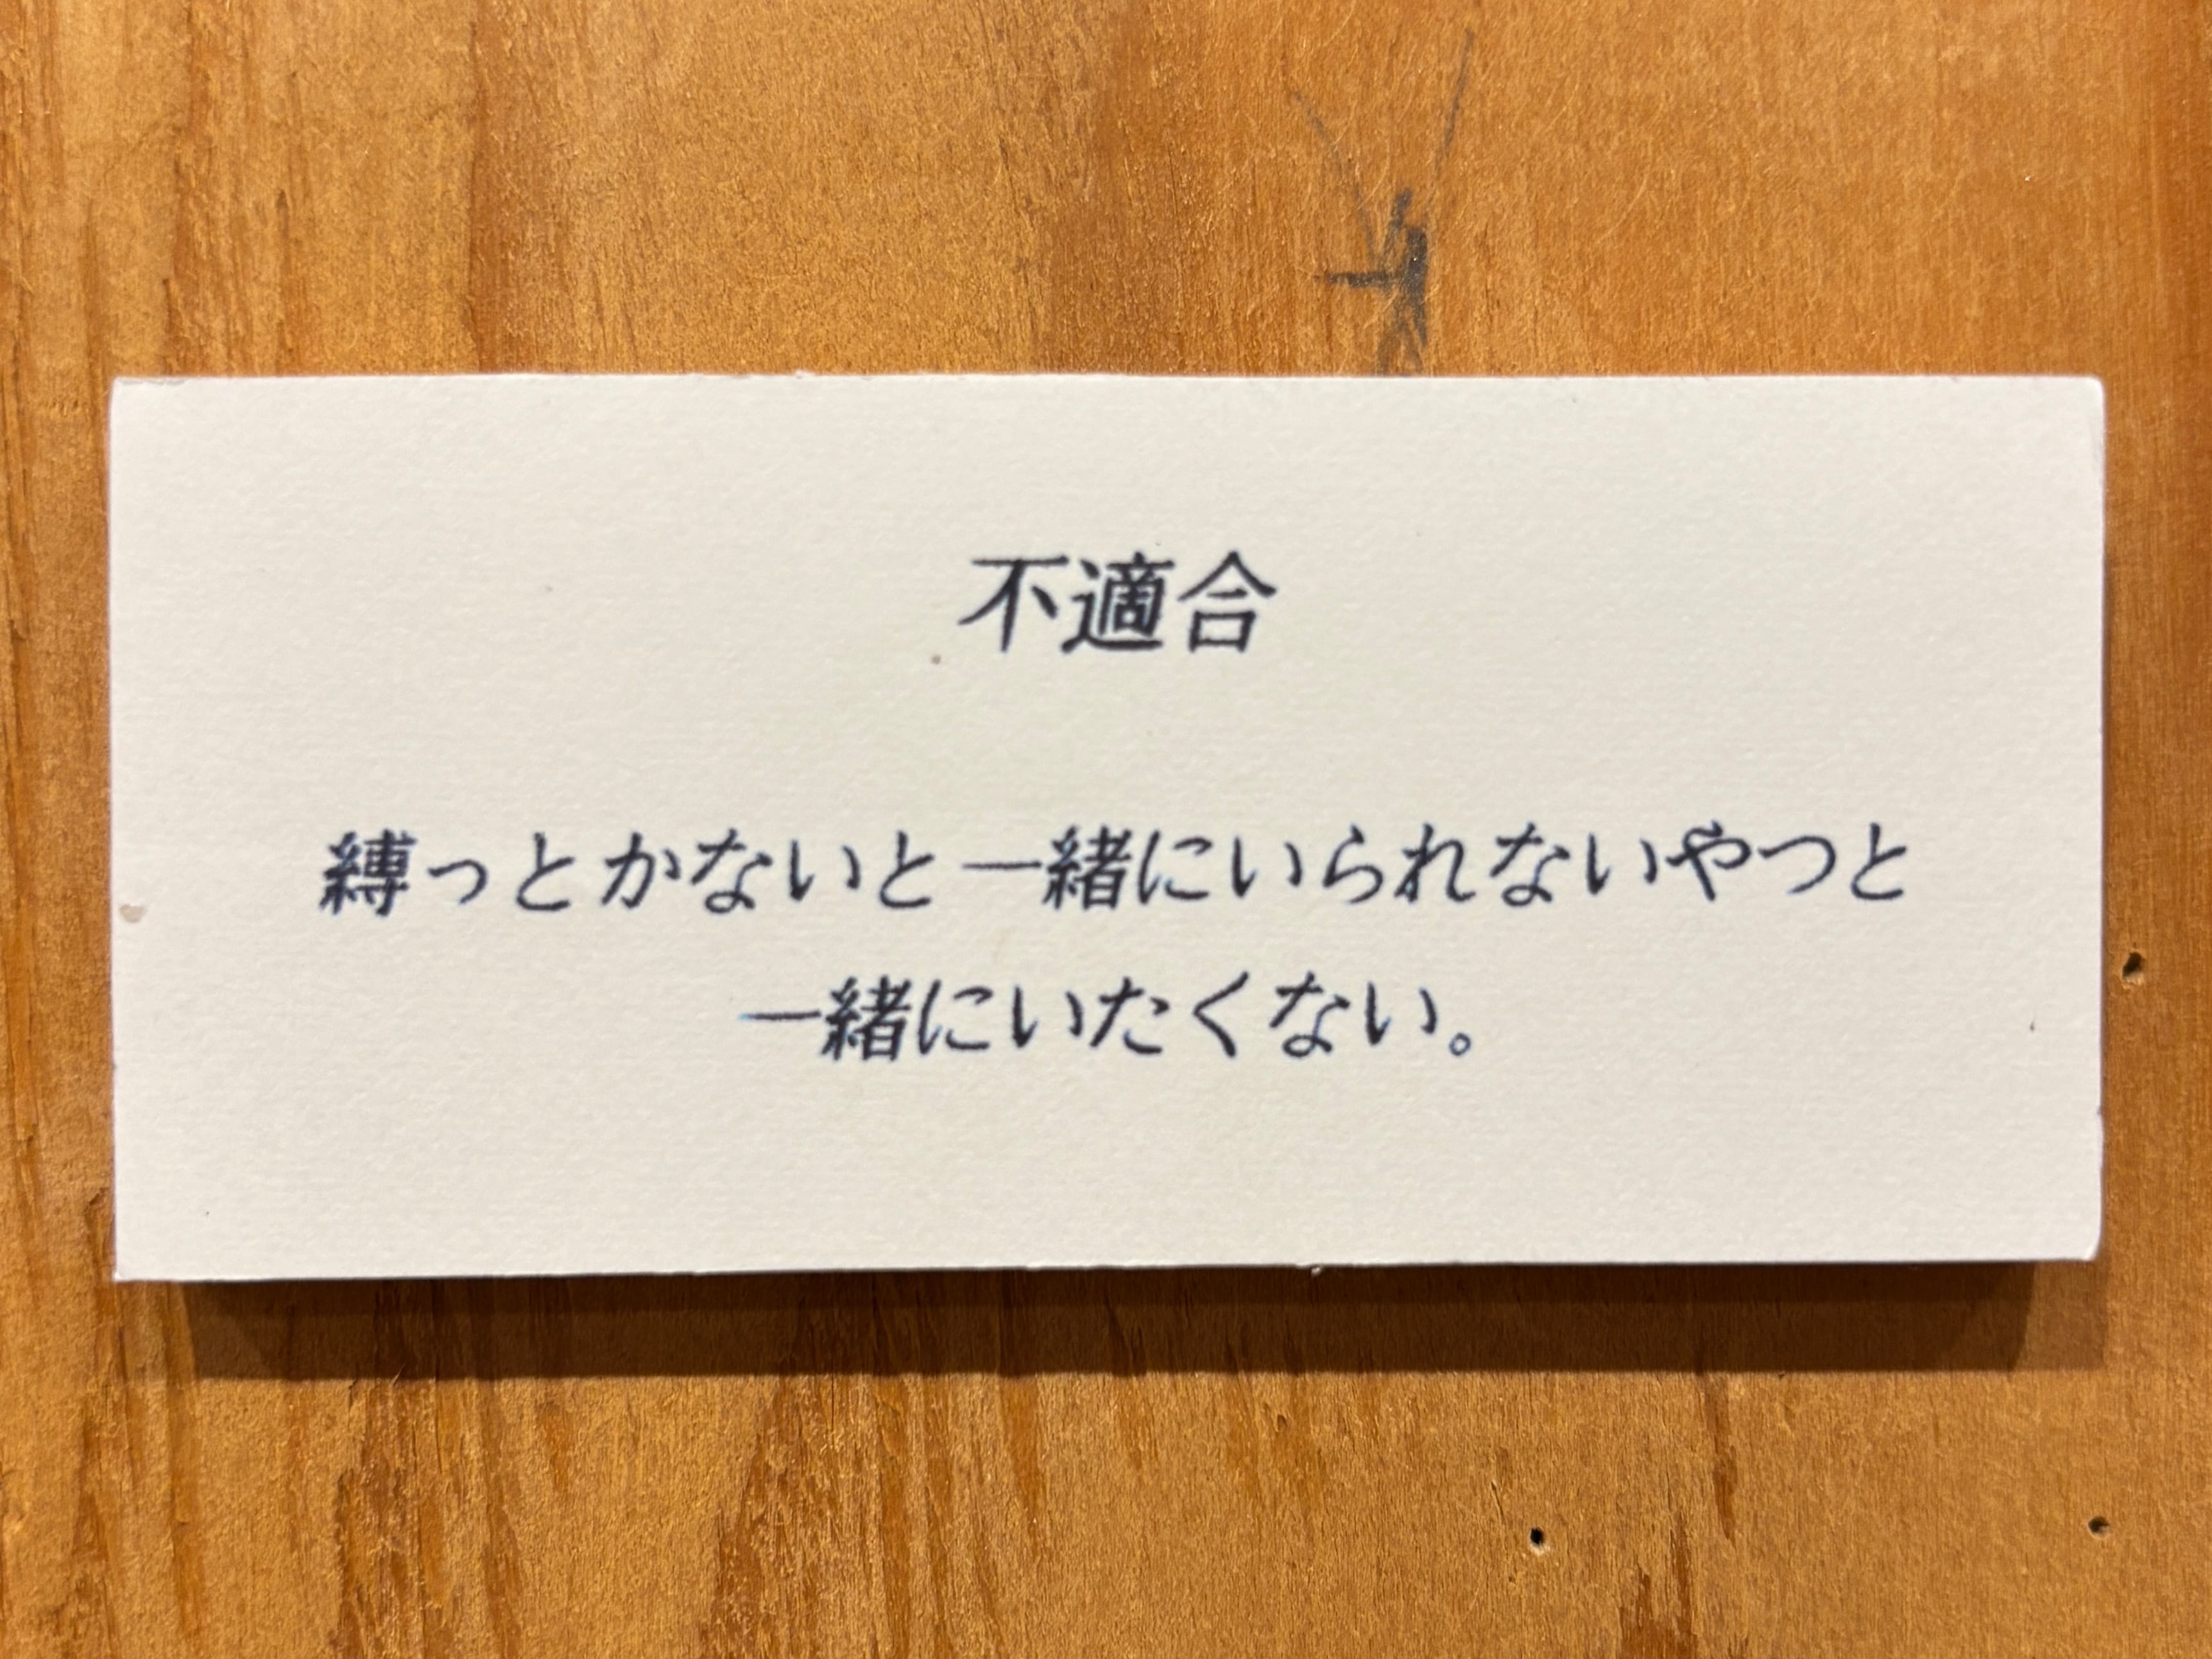 不適合
縛っとかないと一緒にいられないやつと
一緒にいたくない。